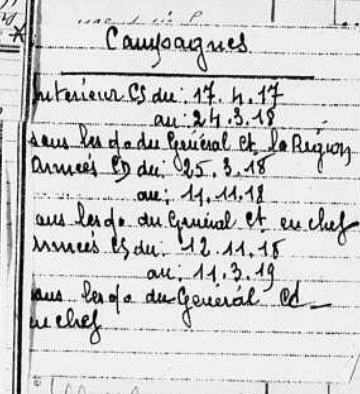 Campagnes
Intérieur CS du : 17.4.17
au : 24.3.18
sous les do du Général Ct la Région
Armées CD du : 25.3.18
au : 11.11.18
sous les do du Général Ct en chef
Armées CS du : 12.11.18
au : 11.3.19
sous les do du Général Cd
en chef